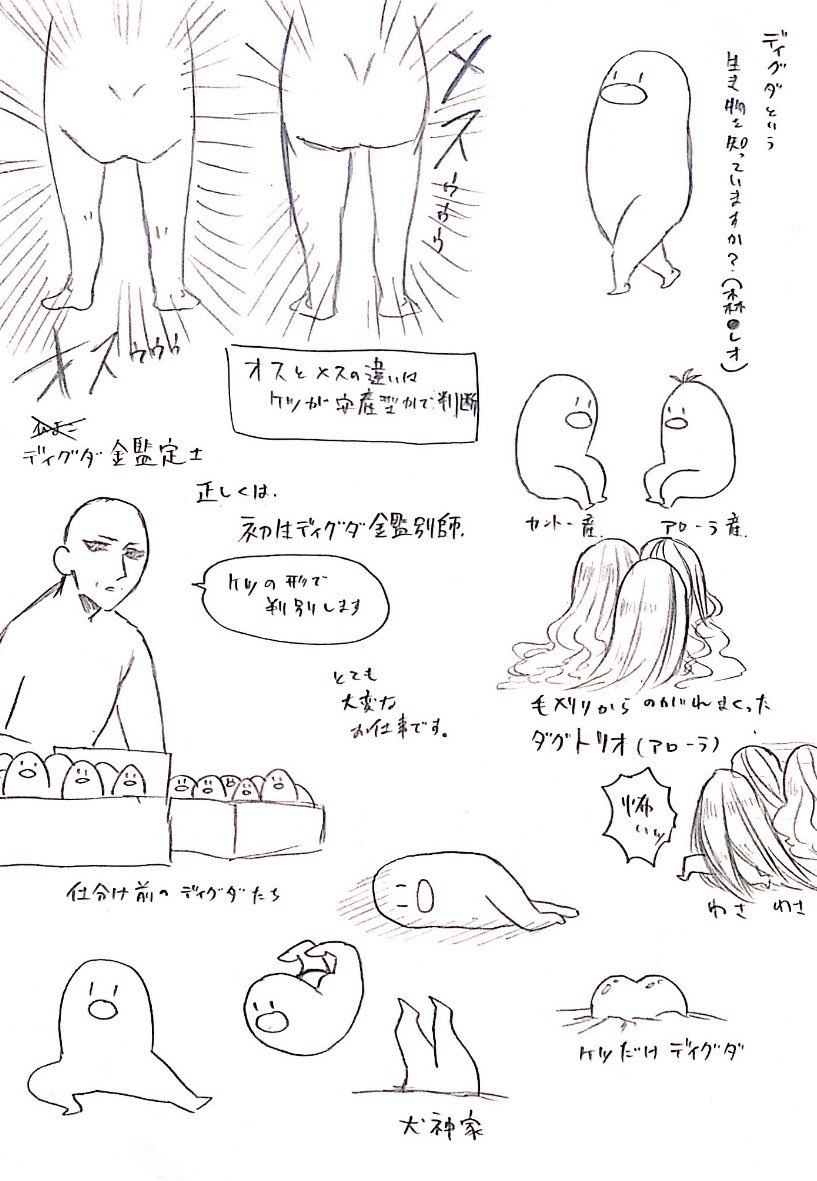 ディグダという
生き物を知っていますか?(森●レオ)
メスゥゥゥ
メスゥゥゥ
オスとメスの違いは
ケツが安産型かで判断
ひよこ
ディグダ鑑定士
正しくは、
初生ディグダ鑑別師。
ケツの形で
判別します
とても
大変な
お仕事です。
仕分け前のディグダたち
カントー産
アローラ産
毛刈りからのがれまくった
ダグトリオ(アローラ)
怖いッ
わさ わさ
犬神家
ケツだけディグダ